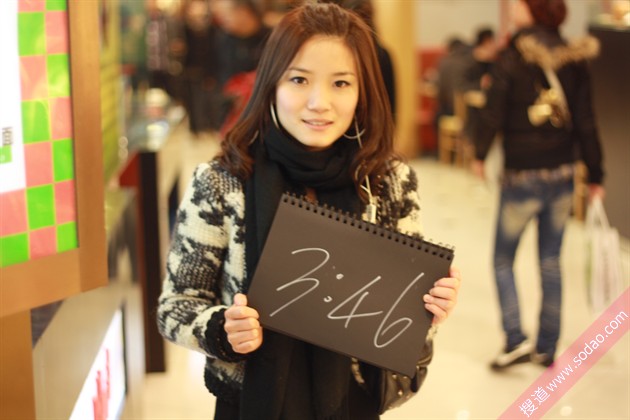 3:46
搜道 www.sodao.com